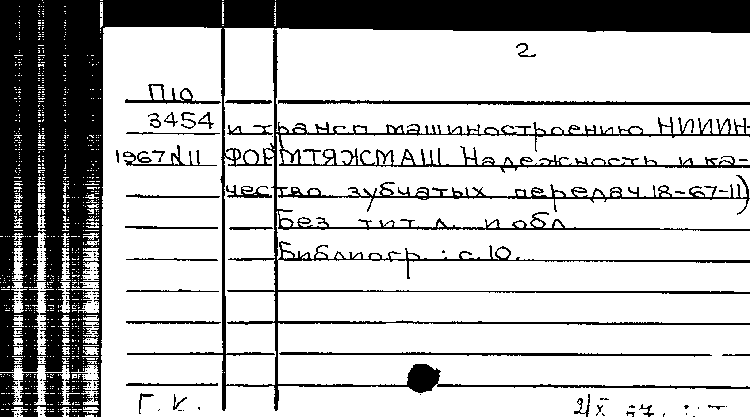 2
П10
3454 и трансп машиностроению НИИИН
1967 N11 ФОРМТЯЖМАШ Надежность и ка-
чество зубчатых передач. 18-67-11)
Без тит. л. и обл.
Библиогр.: с. 10.
Г. К.